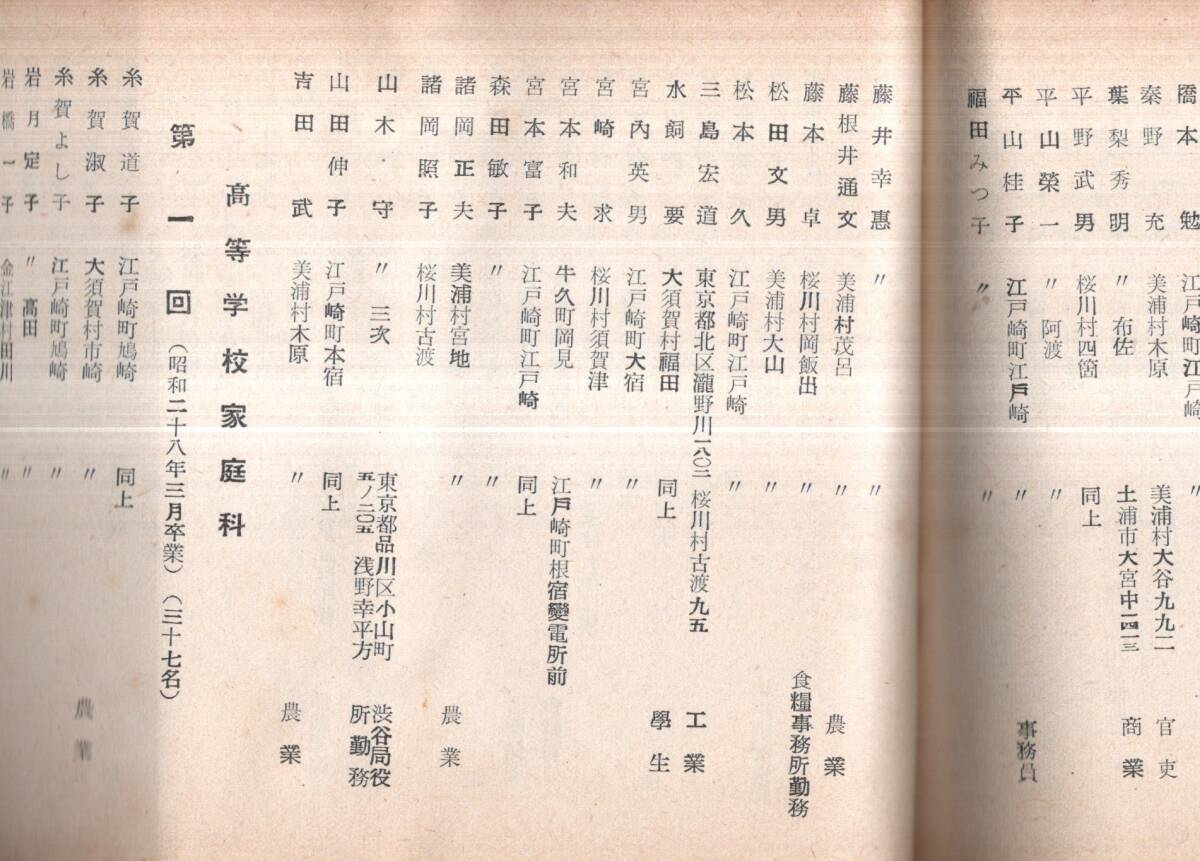 橋本勉 江戸崎町江戸崎 〃
秦野充 美浦村木原 美浦村大谷九九二 官吏
葉梨秀明 〃布佐 土浦市大宮中一四一三 商業
平野武男 桜川村四箇 同上
平山榮一 〃阿渡 〃
平山桂子 江戸崎町江戸崎 〃 事務員
福田みつ子 〃 〃
藤井幸惠 〃 〃
藤根井通文 美浦村茂呂 〃 農業
藤本卓 桜川村岡飯出 〃 食糧事務所勤務
松田文男 美浦村大山 〃
松本久 江戸崎町江戸崎 〃
三島宏道 東京都北区瀧野川一八〇二 桜川村古渡九五 工業
水飼要 大須賀村福田 同上 學生
宮內英男 江戸崎町大宿 〃
宮崎求 桜川村須賀津 〃
宮本和夫 牛久町岡見 江戸崎町根宿變電所前
宮本富子 江戸崎町江戸崎 同上
森田敏子 〃 〃
諸岡正夫 美浦村宮地 〃 農業
諸岡照子 桜川村古渡
山木守 〃三次 東京都品川区小山町五ノ二〇五 浅野幸平方 渋谷局役所勤務
山田伸子 江戸崎町本宿 同上
吉田武 美浦村木原 〃 農業
高等学校家庭科
第一回(昭和二十八年三月卒業)(三十七名)
糸賀道子 江戸崎町鳩崎 同上
糸賀淑子 大須賀村市崎 〃 農業
糸賀よし子 江戸崎町鳩崎 〃
岩月定子 〃高田 〃
岩橋一子 金江津村田川 〃